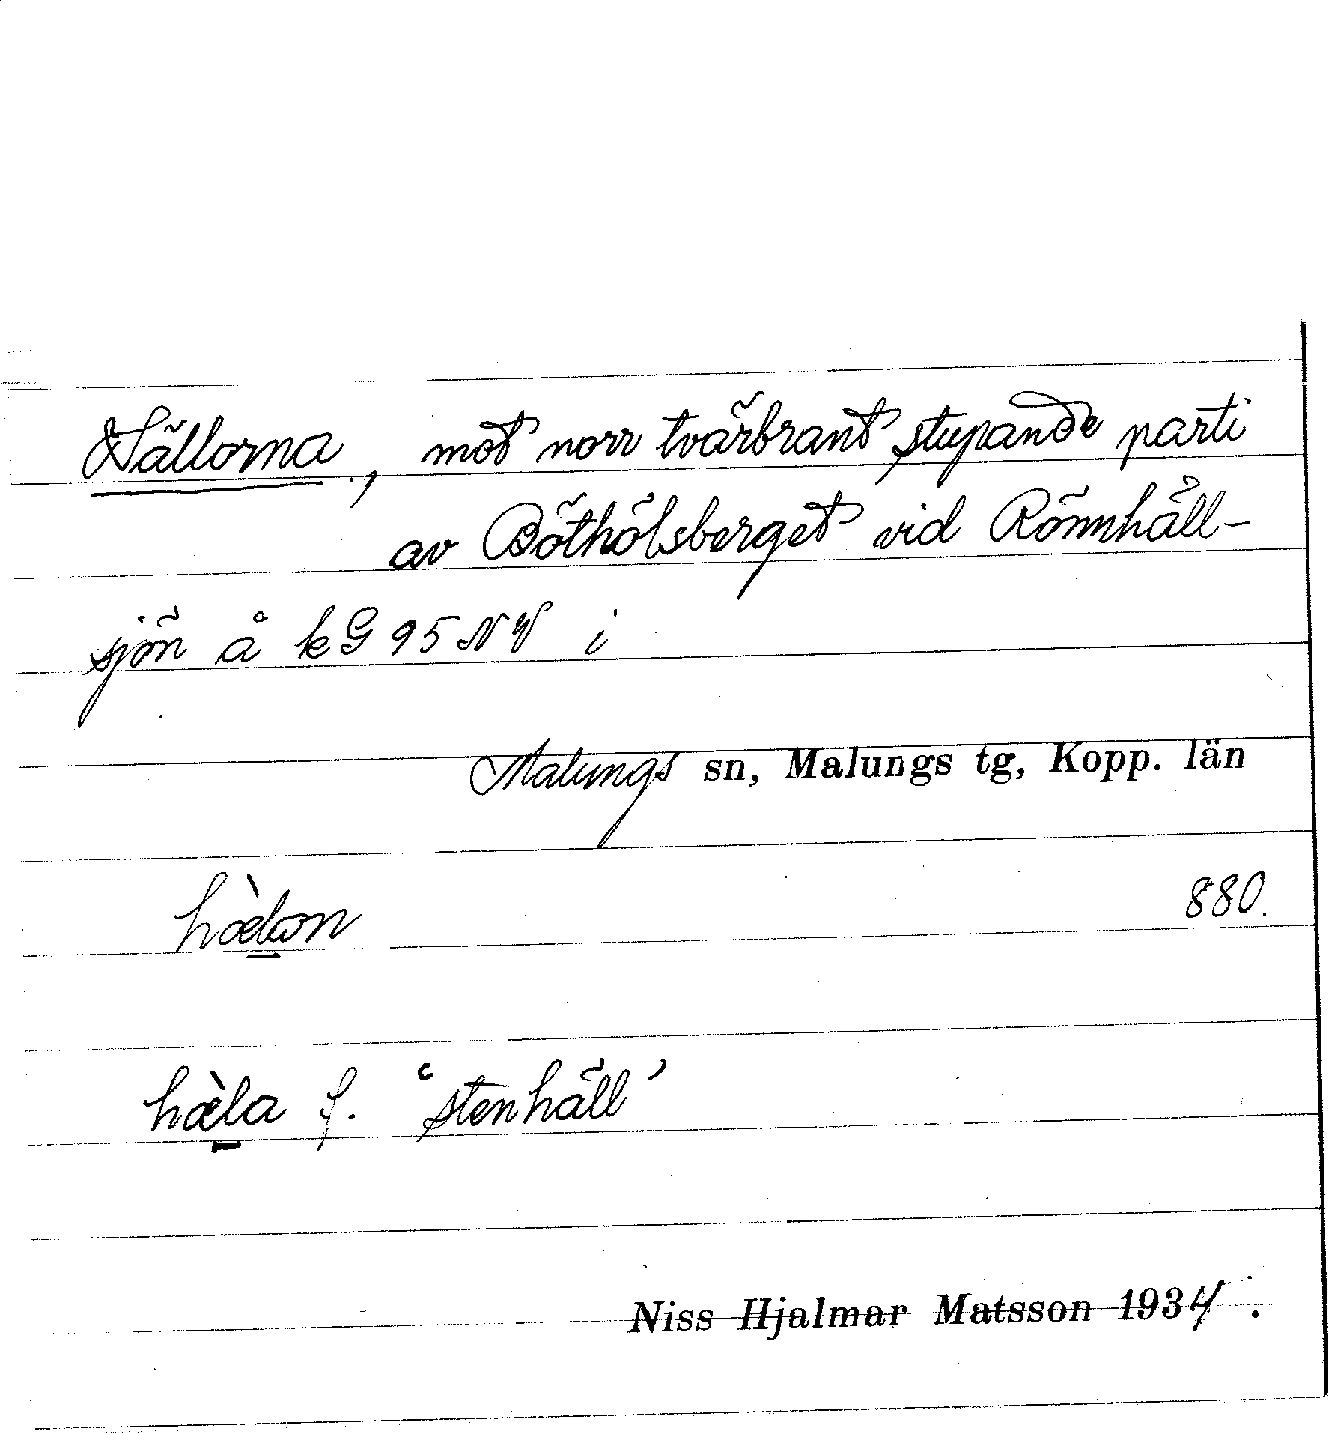 Hällorna, mot norr tvärbrant stupande parti
av Böthölsberget vid Rönnhåll-
sjön å kG 95 NV i
Malungs sn, Malungs tg, Kopp. län
hæ̀lon 880.
hæ̀la f. ʿstenhällʾ
Niss Hjalmar Matsson 1934.